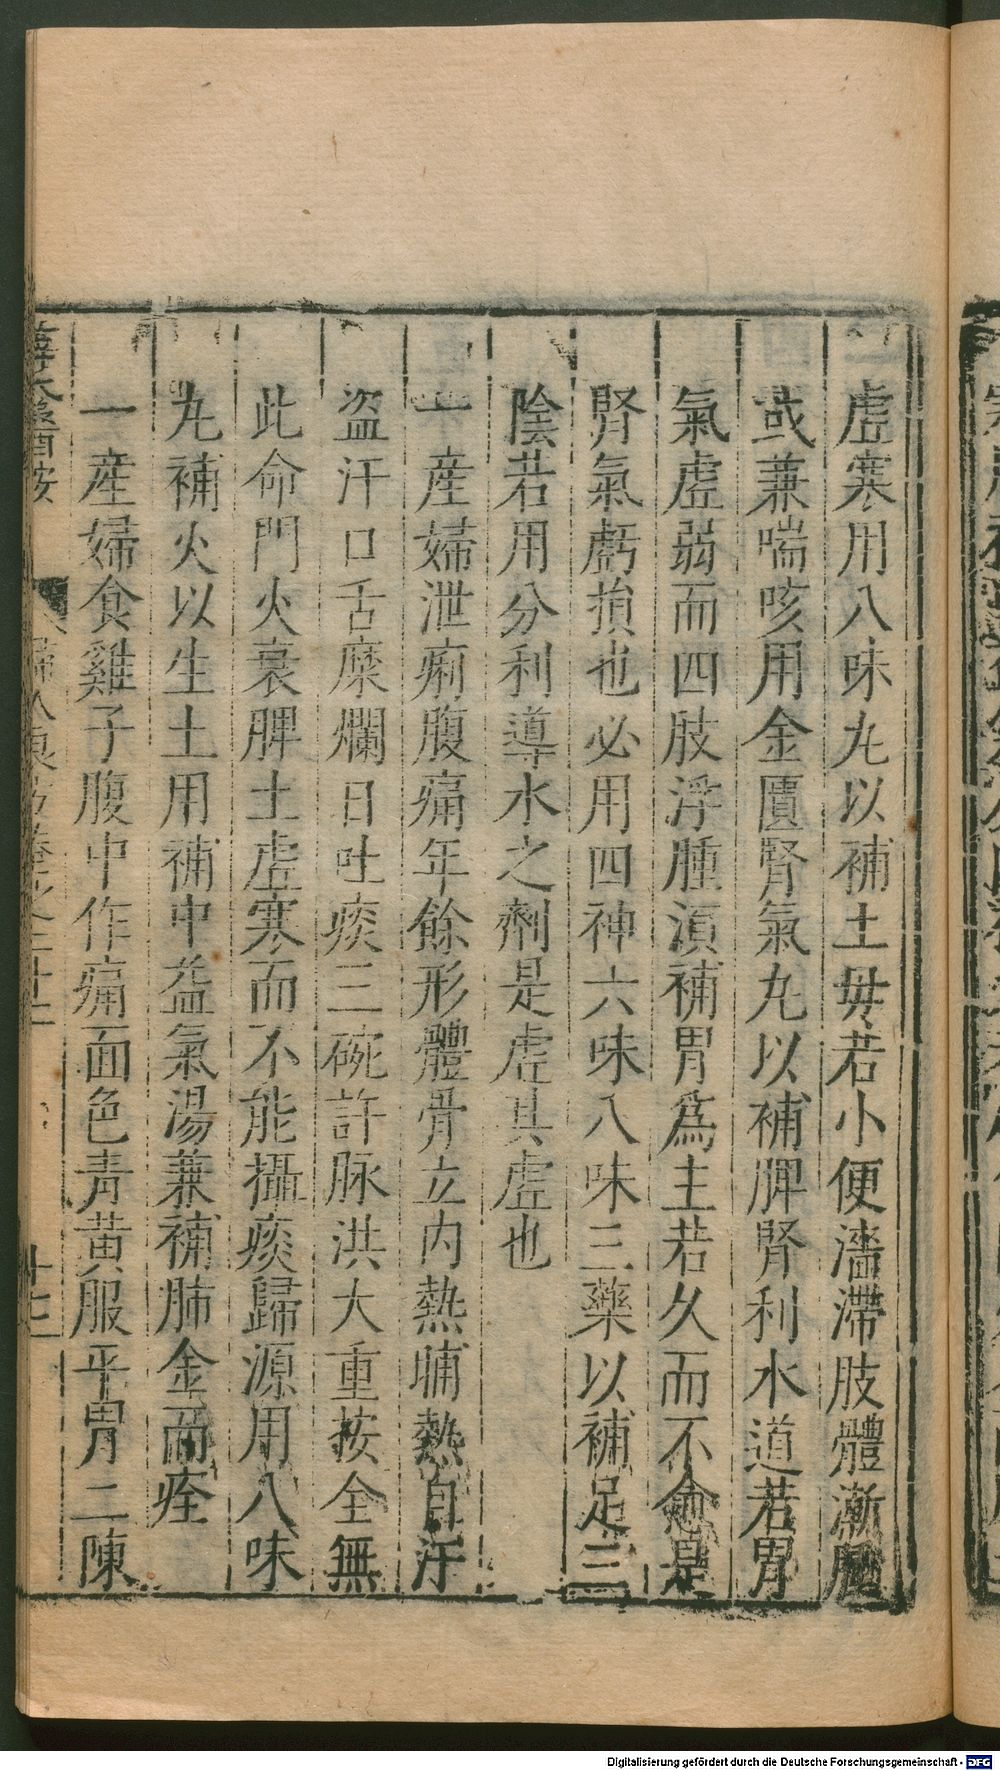 虛寒用八味丸以補土母若小便濇滯肢體漸腫
或兼喘咳用金匱腎氣丸以補脾腎利水道若胃
氣虛弱而四肢浮腫須補胃爲主若久而不愈是
腎氣虧損也必用四神六味八味三藥以補足三
陰若用分利導水之劑是虛其虛也
一產婦泄痢腹痛年餘形體骨立內熱晡熱自汗
盜汗口舌糜爛日吐痰三碗許脉洪大重按全無
此命門火衰脾土虛寒而不能攝痰歸源用八味
丸補火以生土用補中益氣湯兼補肺金而痊
一產婦食雞子腹中作痛面色青黃服平胃二陳
薛太醫按
婦人良方卷之二十二
十七
Digitalisierung gefördert durch die Deutsche Forschungsgemeinschaft - DFG